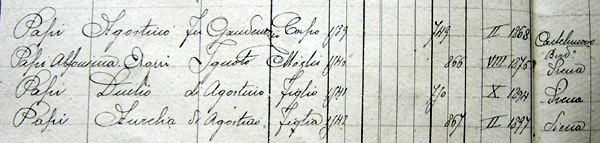 Papi Agostino fu Gaudenzio Capo 1139 749 II 1868 Castelnuovo Berd.
Papi Alfonsina Chiarri Ignoto Moglie 1140 866 VIII 1876 Siena
Papi Duilio di Agostino Figlio 1141 710 X 1894 Siena
Papi Aurelia di Agostino Figlia 1142 867 II 1897 Siena